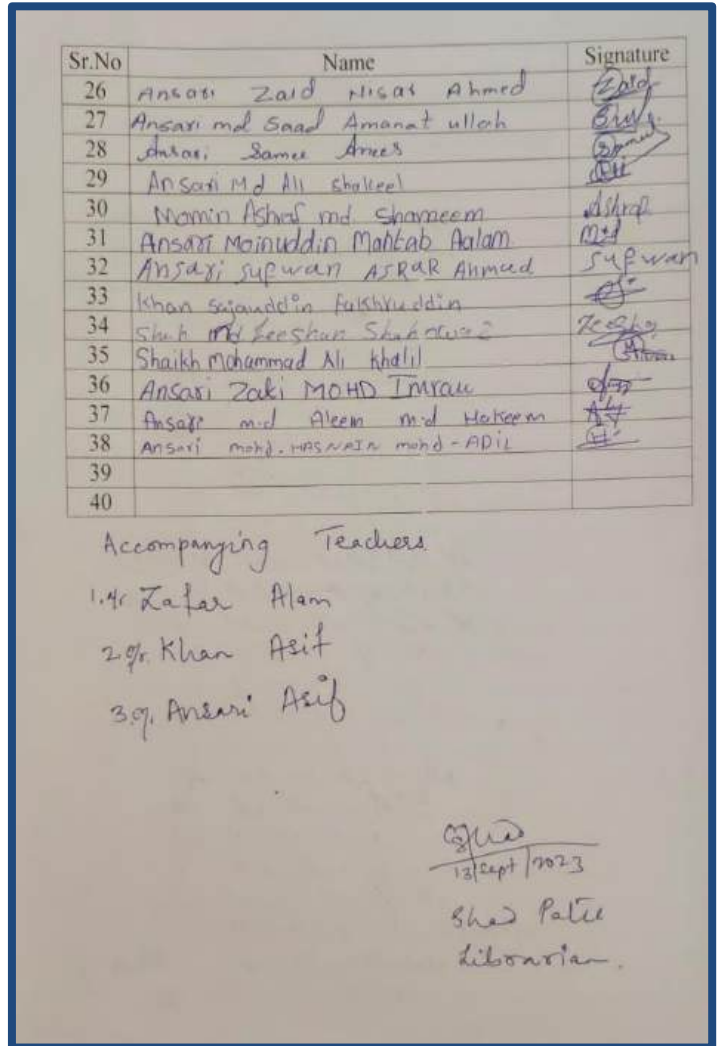 Sr.No Name Signature
26 Ansari Zaid Nisar Ahmed Zaid
27 Ansari md Saad Amanat ullah
28 Ansari Samee Anees
29 Ansari Md Ali Shakeel
30 Momin Ashraf md Shameem Ashraf
31 Ansari Moinuddin Mahtab Aalam Md
32 Ansari Sufwan ASRAR Ahmad Sufwan
33 Khan Sajauddin Fakhruddin
34 Shah Md Zeeshan Shahnawaz
35 Shaikh Mohammad Ali Khalil
36 Ansari Zaki MOHD Imran
37 Ansari m.d Aleem m.d Hakeem
38 Ansari mohd. HASNAIN mohd - ADIL
39
40
Accompanying Teachers
1. Zafar Alam
2. Khan Asif
3. Ansari Asif
13/Sept/2023
Shad
Librarian.